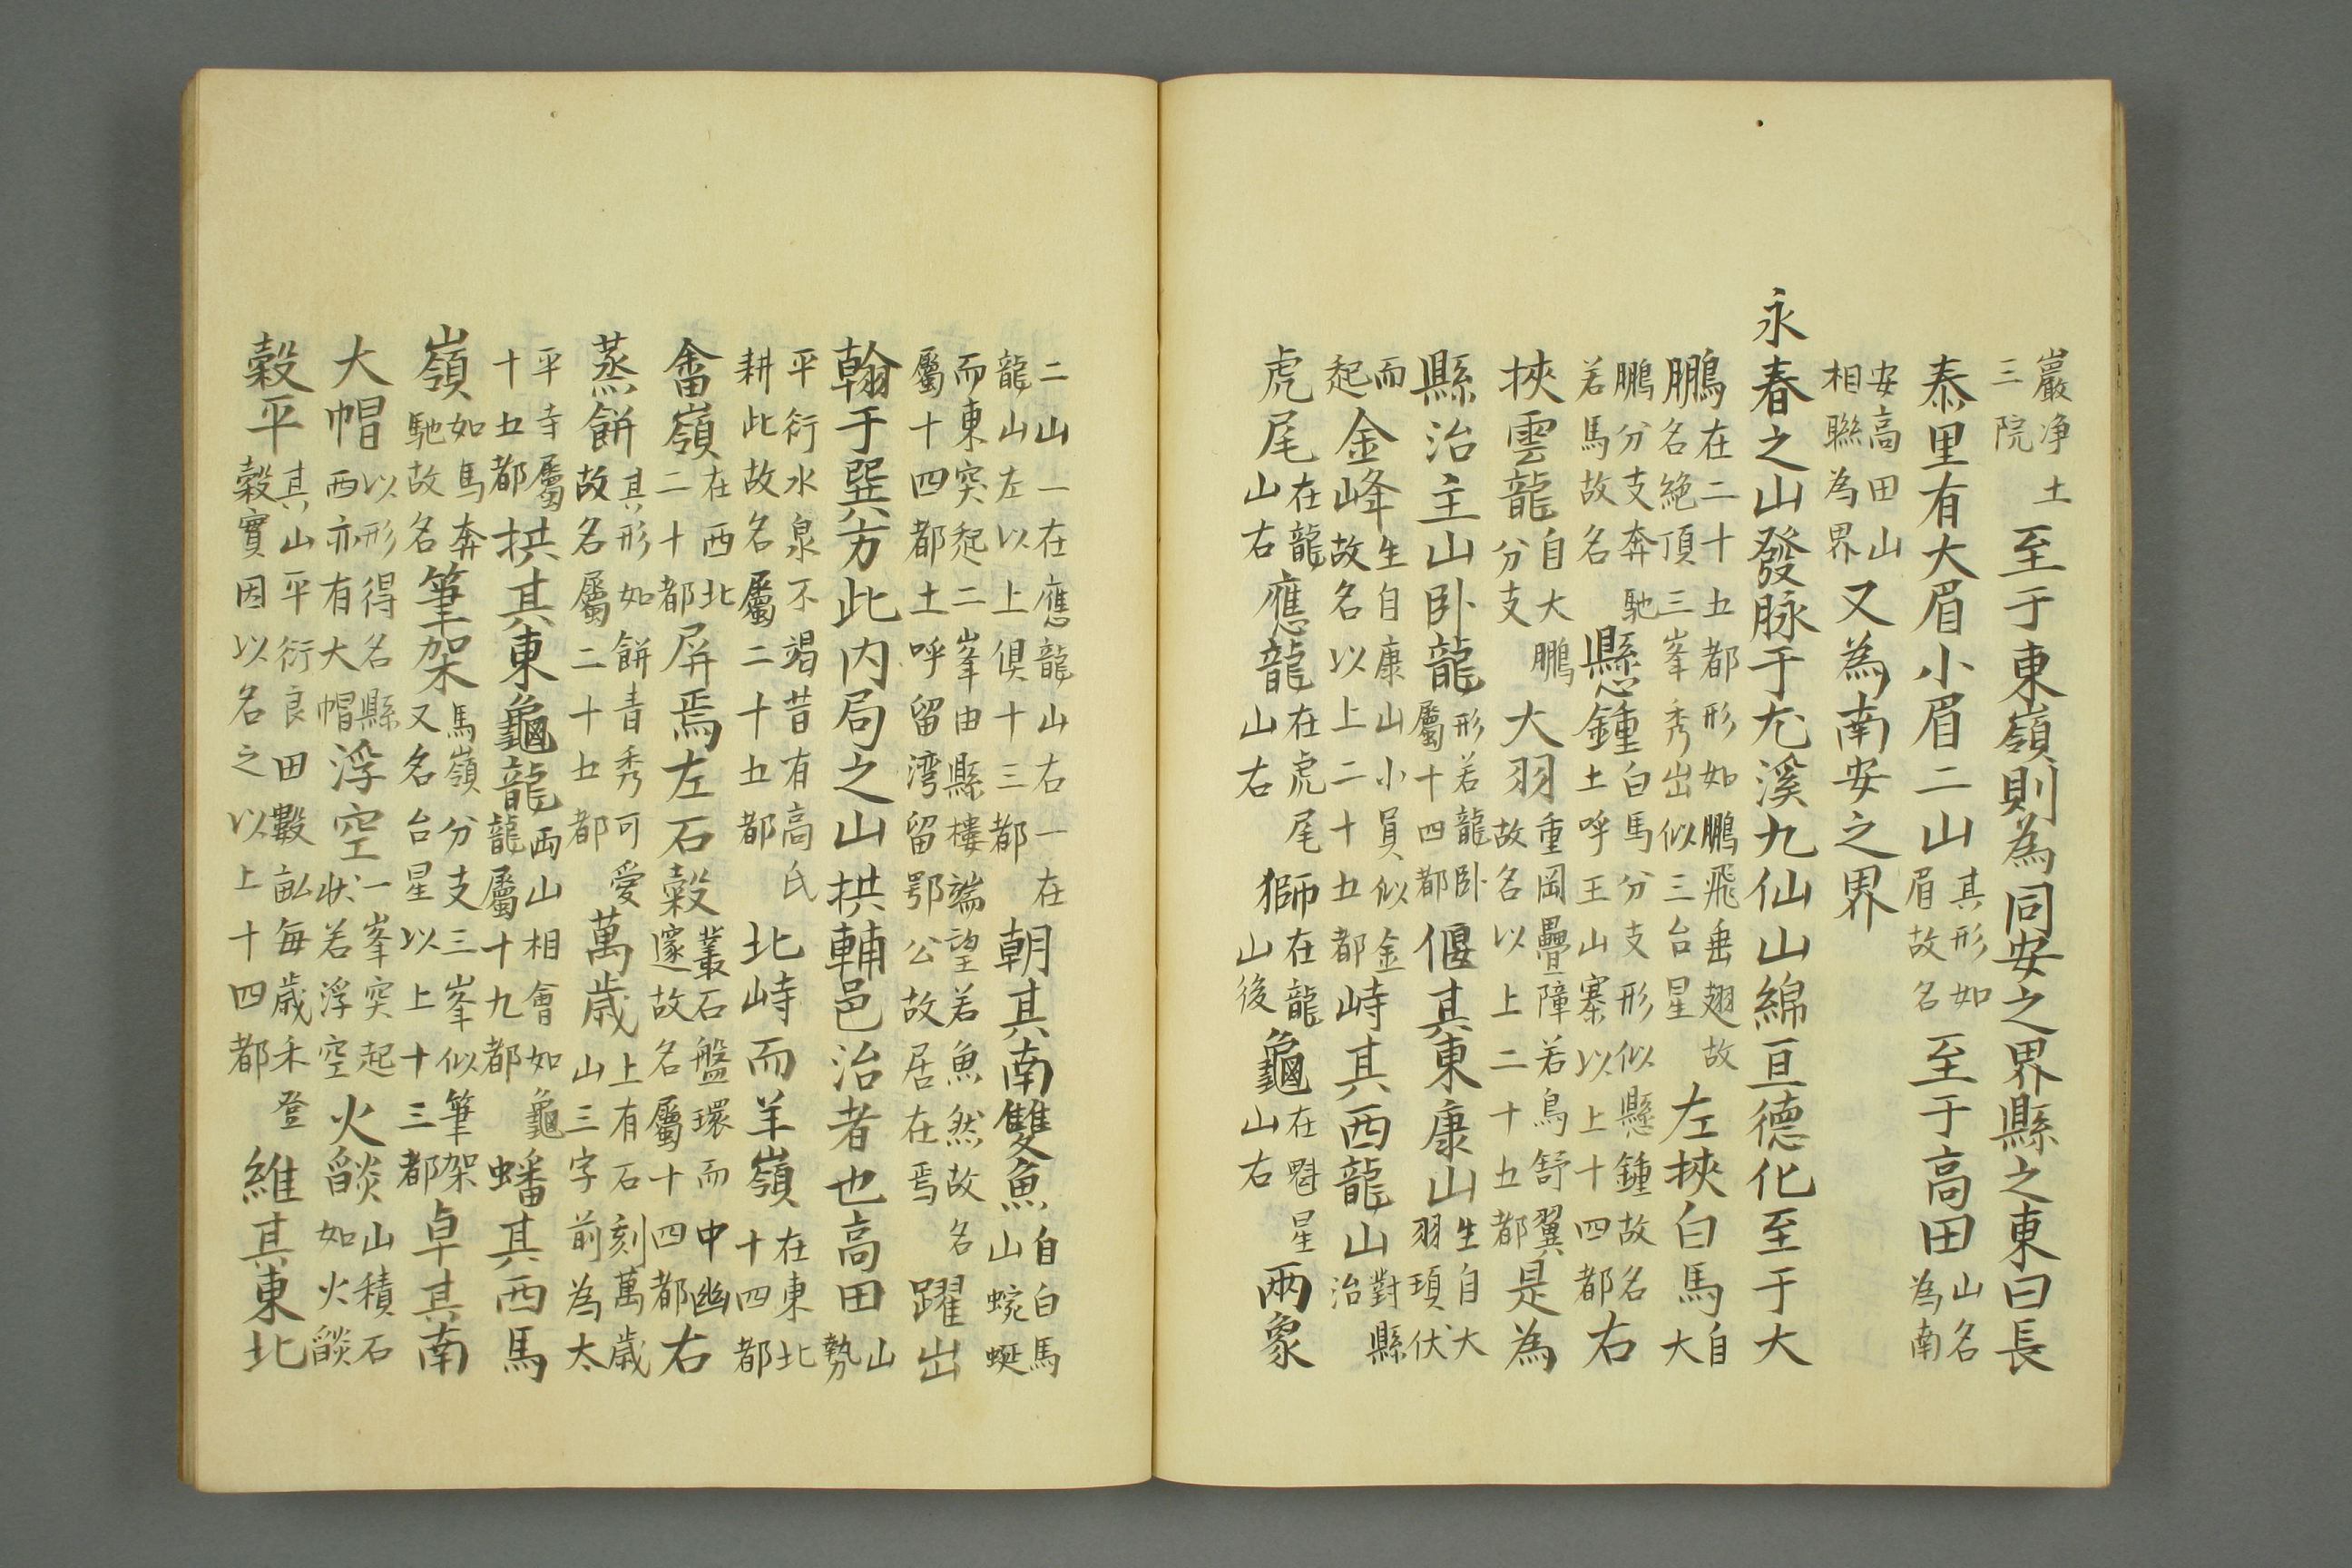 巖净土三院至于東嶺則為同安之界縣之東曰長
泰里有大眉小眉二山其形如眉故名至于高田山名為南
安高田山相聯為界又為南安之界
永春之山發脉于尤溪九仙山綿亘德化至于大
鵬在二十五都形如鵬飛垂翅故名絶頂三峯秀出似三台星左挾白馬自大
鵬分支奔馳若馬故名懸鍾白馬分支形似懸鍾故名土呼王山寨以上十四都右
挾雲龍自大鵬分支大羽重岡疊障若鳥舒翼故名以上二十五都是為
縣治主山卧龍形若龍卧屬十四都偃其東康山生自大羽頊伏
而起金峰生自康山小員似金故名以上二十五都峙其西龍山對縣治
虎尾在龍山右應龍在虎尾山右獅在龍山後龜在魁星山右兩象
二山一在應龍山右一在龍山左以上俱十三都朝其南雙魚自白馬山蜿蜒
而東突起二峯由縣樓端望若魚然故名屬十四都土呼留湾留鄂公故居在焉躍出
翰于巽方此内局之山拱輔邑治者也高田山勢
平衍水泉不竭昔有高氏耕此故名屬二十五都北峙而羊嶺在東北十四都
畬嶺在西北二十都屏焉左石穀叢石盤環而中幽邃故名屬十四都右
蒸餅其形如餅青秀可愛故名屬二十五都萬歲上有石刻萬歲山三字前為太
平寺屬十五都拱其東龜龍兩山相會如龜龍屬十九都蟠其西馬
嶺如馬奔馳故名筆架馬嶺分支三峯似筆架又名台星以上十三都卓其南
大帽以形得名縣西亦有大帽浮空一峯突起狀若浮空火燄山積石如火燄
穀平其山平衍良田數畝每歲禾登穀實因以名之以上十四都維其東北